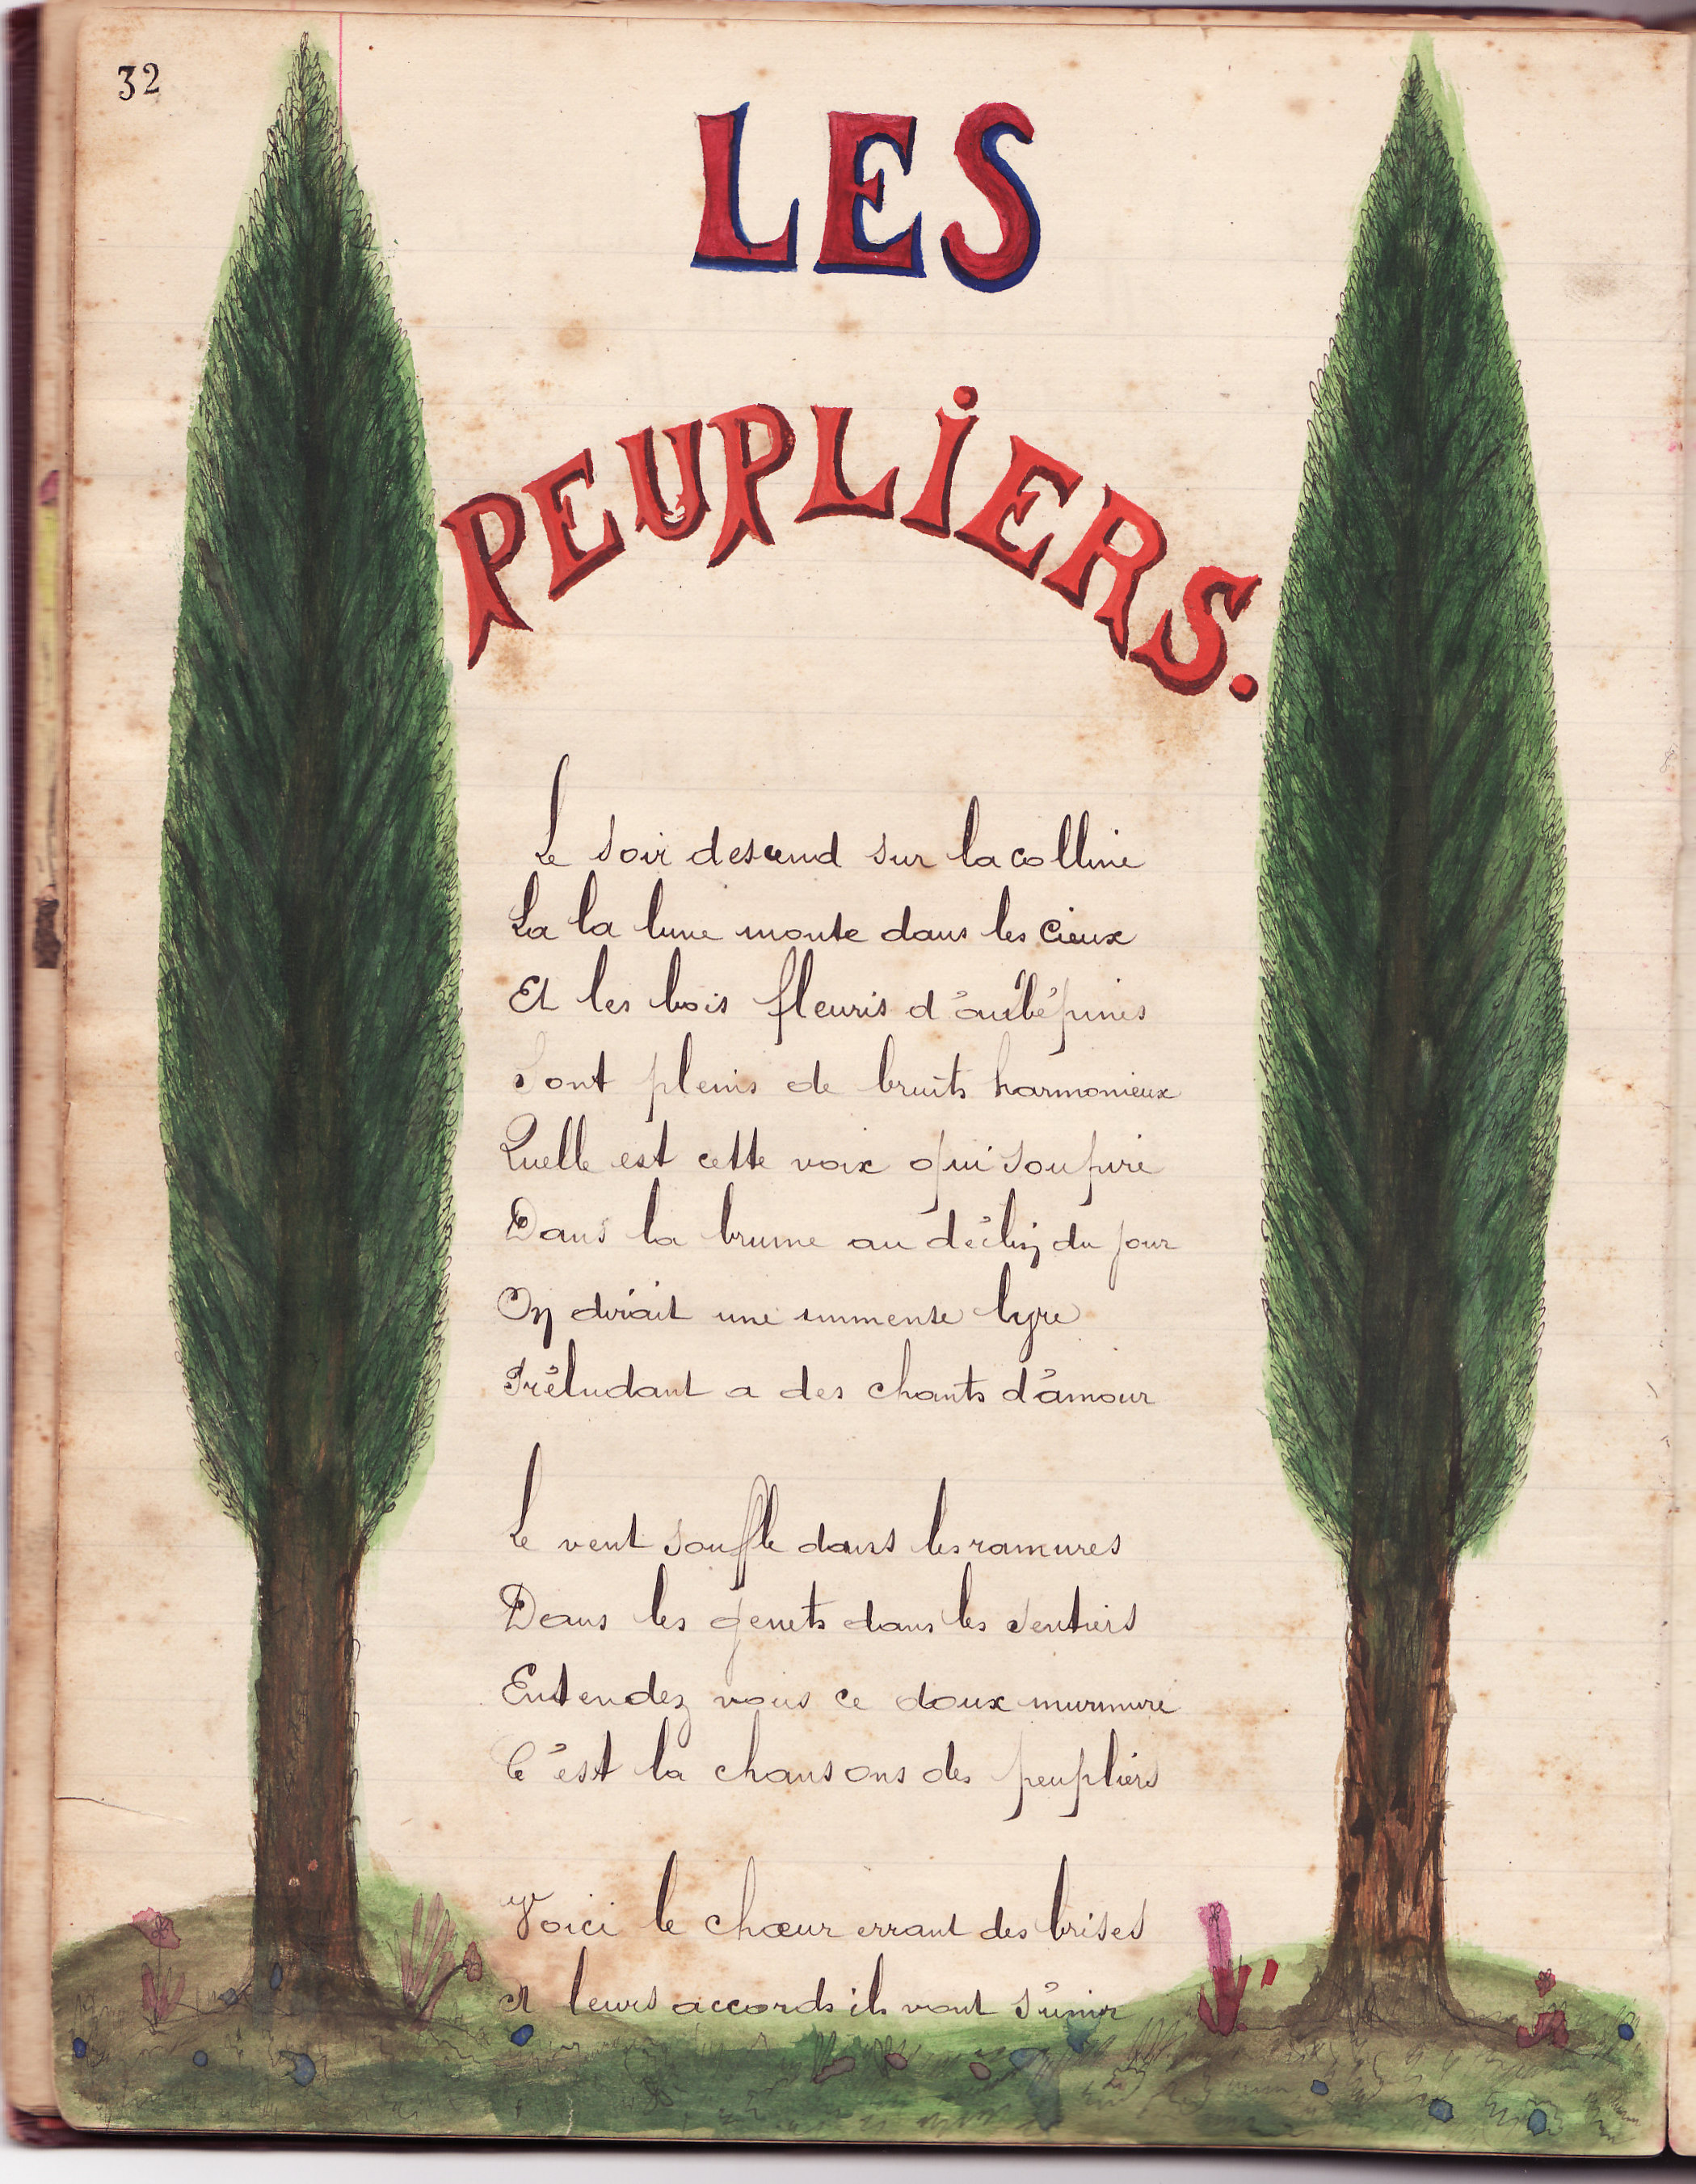 32
LES
PEUPLiERS.
Le soir descend sur la colline
La la lune monte dans les cieux
Et les bois fleuris d'aubépines
Sont pleins de bruits harmonieux
Quelle est cette voix qui soupire
Dans la brume au déclin du jour
On dirait une immense lyre
Préludant a des chants d'amour
Le vent souffle dans les ramures
Dans les genets dans les sentiers
Entendez vous ce doux murmure
C'est la chansons des peupliers
Voici le chœur errant des brises
et leurs accords ils vont s'unir